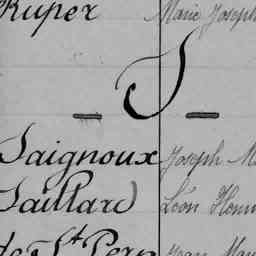 Ruper Marie Joseph
S
Saignoux Joseph M
Saillard Léon Henri
de St Pern Jean Mar